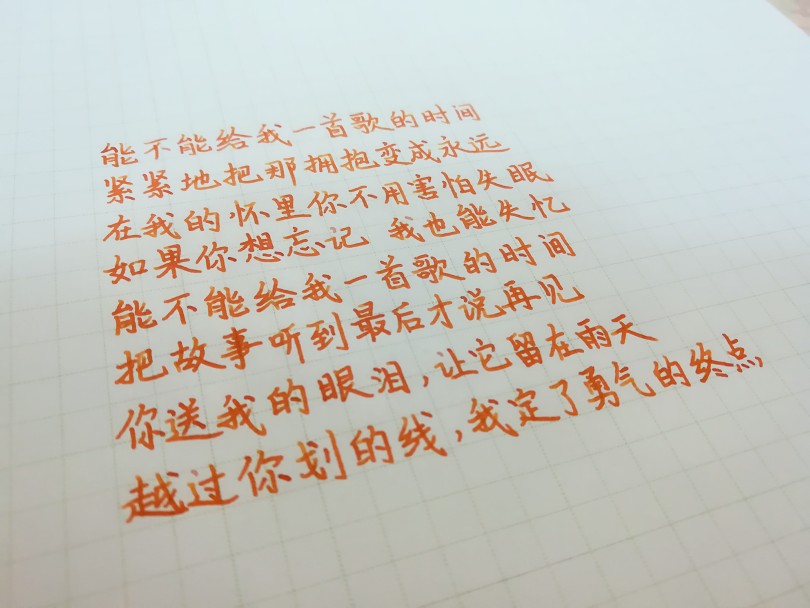 能不能给我一首歌的时间
紧紧地把那拥抱变成永远
在我的怀里你不用害怕失眠
如果你想忘记 我也能失忆
能不能给我一首歌的时间
把故事听到最后才说再见
你送我的眼泪,让它留在雨天
越过你划的线,我定了勇气的终点,